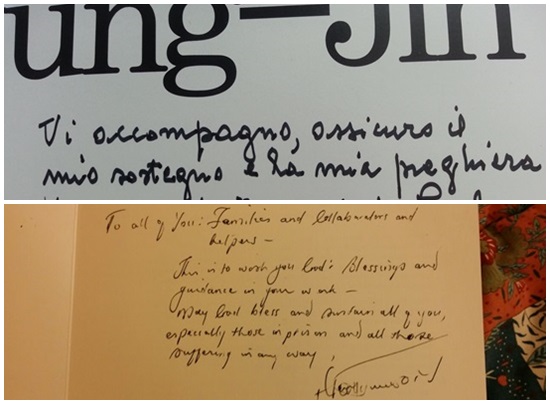 ung-Jin
Vi accompagno, assicuro il
mio sostegno e la mia preghiera
To all of You: Families and Collaborators and
helpers –
This is to wish you God's Blessings and
guidance in your work –
May God bless and sustain all of you,
especially those in prison and all those
suffering in any way,